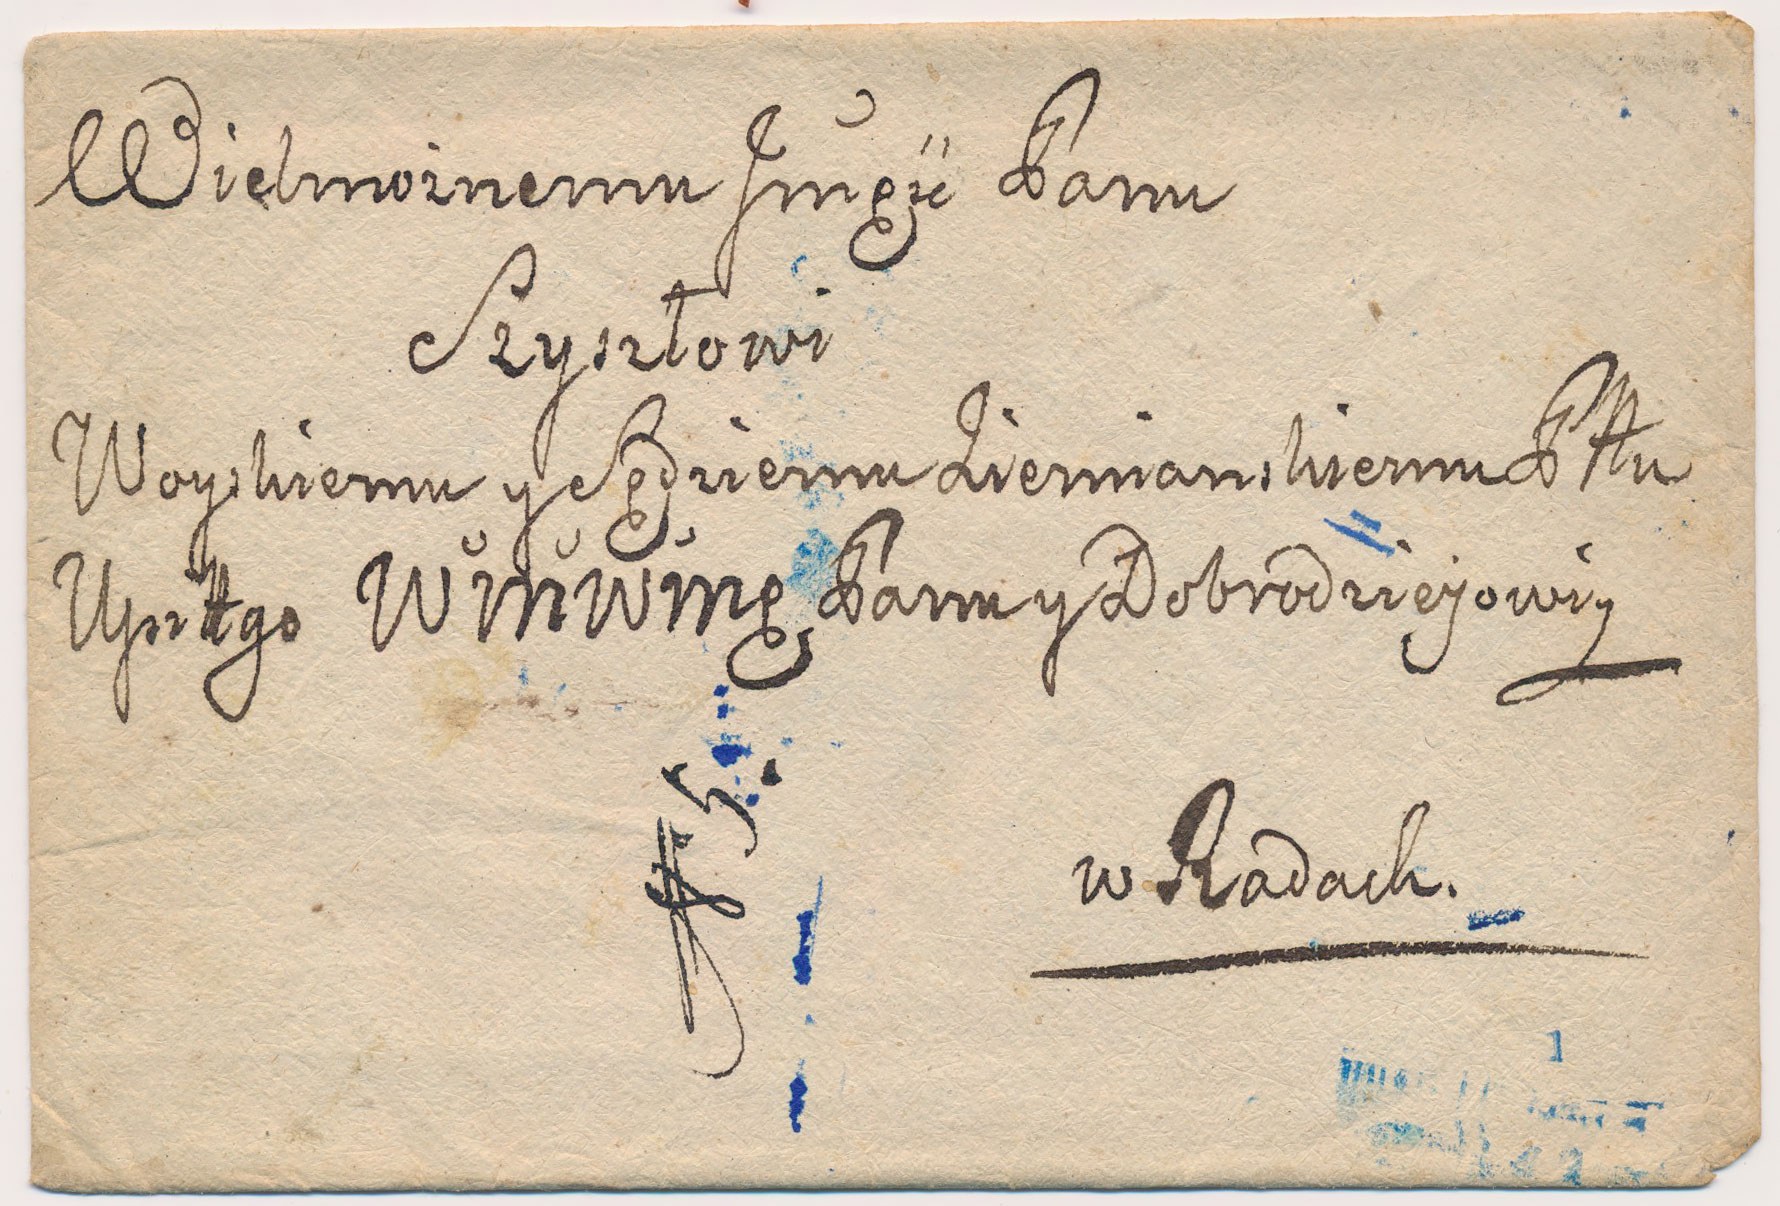 Wielmoznemu Jmgӱ Panu
Szyszłowi
Woyskiemu y Sędziemu Ziemianskiemu Pttu
Upittgo W̆m̆W̆ṁę Panu y Dobrodziejowi
w Radach.